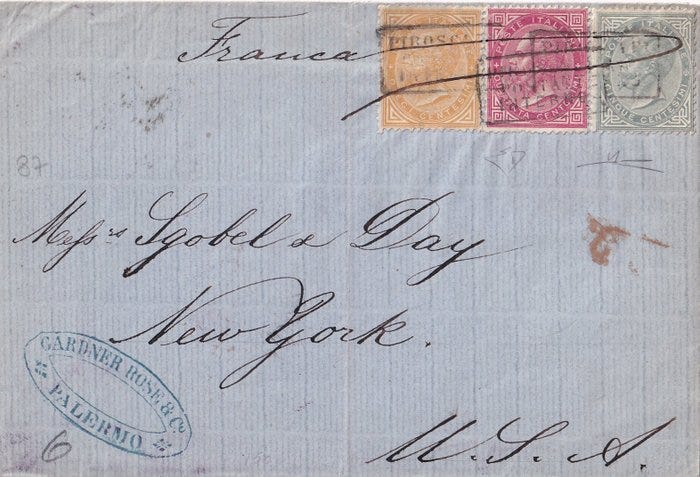 POSTE ITALIANE
Franca
PIROSCAFI
CENTESIMI
CENTESIMI
CINQUE CENTESIMI
87
Messrs Sgobel & Day
New York.
GARDNER ROSE & Co
PALERMO
6
U. S. A.